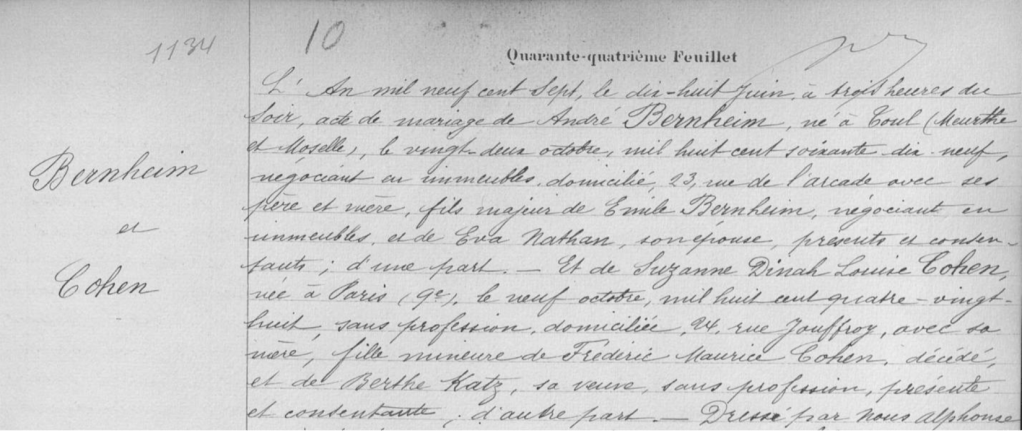 1134
10
Quarante-quatrième Feuillet
L'An mil neuf cent sept, le dix-huit Juin, à trois heures du
soir, acte de mariage de André Bernheim, né à Toul (Meurthe
et Moselle), le vingt-deux octobre, mil huit cent soixante-dix-neuf,
négociant en immeubles, domicilié, 23, rue de l'arcade avec ses
père et mère, fils majeur de Emile Bernheim, négociant en
immeubles, et de Eva Nathan, son épouse, présents et consen-
tants; d'une part. — Et de Suzanne Dinah Louise Cohen,
née à Paris (9e), le neuf octobre, mil huit cent quatre-vingt-
huit, sans profession, domiciliée, 24, rue Jouffroy, avec sa
mère, fille mineure de Frédéric Maurice Cohen, décédé,
et de Berthe Katz, sa veuve, sans profession, présente
et consentante; d'autre part. — Dressé par Nous Alphonse
Bernheim
et
Cohen